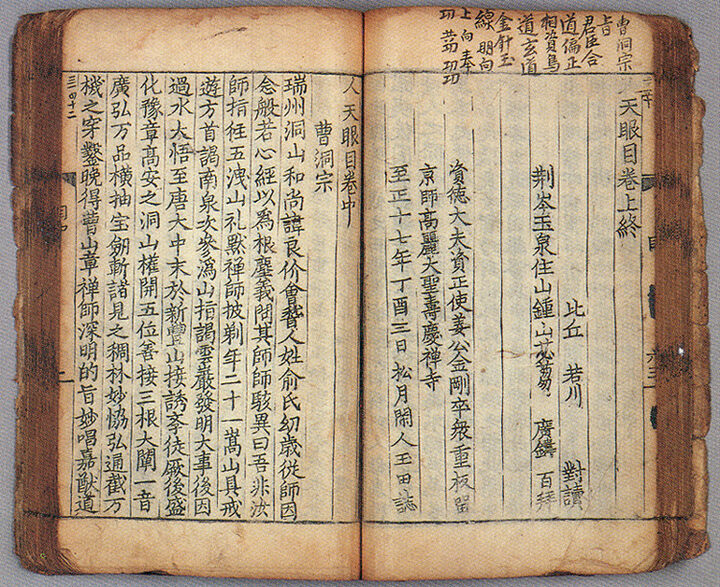 曹洞宗
旨
君臣合
道偏正
相資鳥
道玄道
金針玉
線 明向
上向奉
功 共功 功功
天眼目卷上終
比丘 若川 對讀
荆岑玉泉住山鍾山苾蒭 廣鑄 百拜
資德大夫資正使姜公金剛卒衆重板留
京師高麗大聖壽慶禪寺
至正十七年丁酉三日松月閑人玉田誌
人天眼目卷中
曹洞宗
瑞州洞山和尚諱良价會稽人姓俞氏幼歲從師因
念般若心經以爲根塵義問其師師駭異曰吾非汝
師指徃五洩山礼默禪師披剃年二十一嵩山具戒
遊方首謁南泉次參潙山指謁雲巖發明大事後因
過水大悟至唐大中末於新豐山接誘斈徒厥後盛
化豫章高安之洞山權開五位善接三根大闡一音
廣弘万品横抽宝劒斬諸見之稠林妙恊弘通截万
機之穿鑿晩得曹山章禪師深明的旨妙唱嘉猷道
三四十二